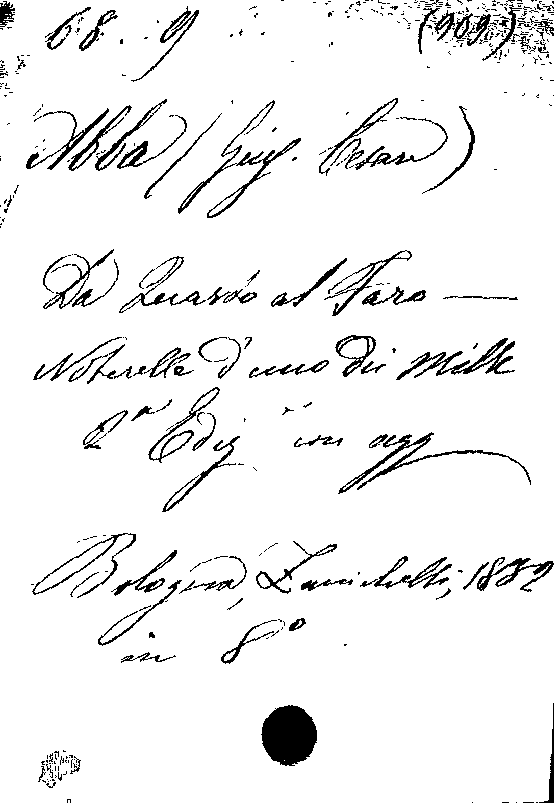 68. 9 (909)
Abba (Gius. Cesare)
Da Quarto al Faro —
Noterelle d'uno dei Mille
2ª Ediz. con agg
Bologna, Zanichelli, 1882
in 8°